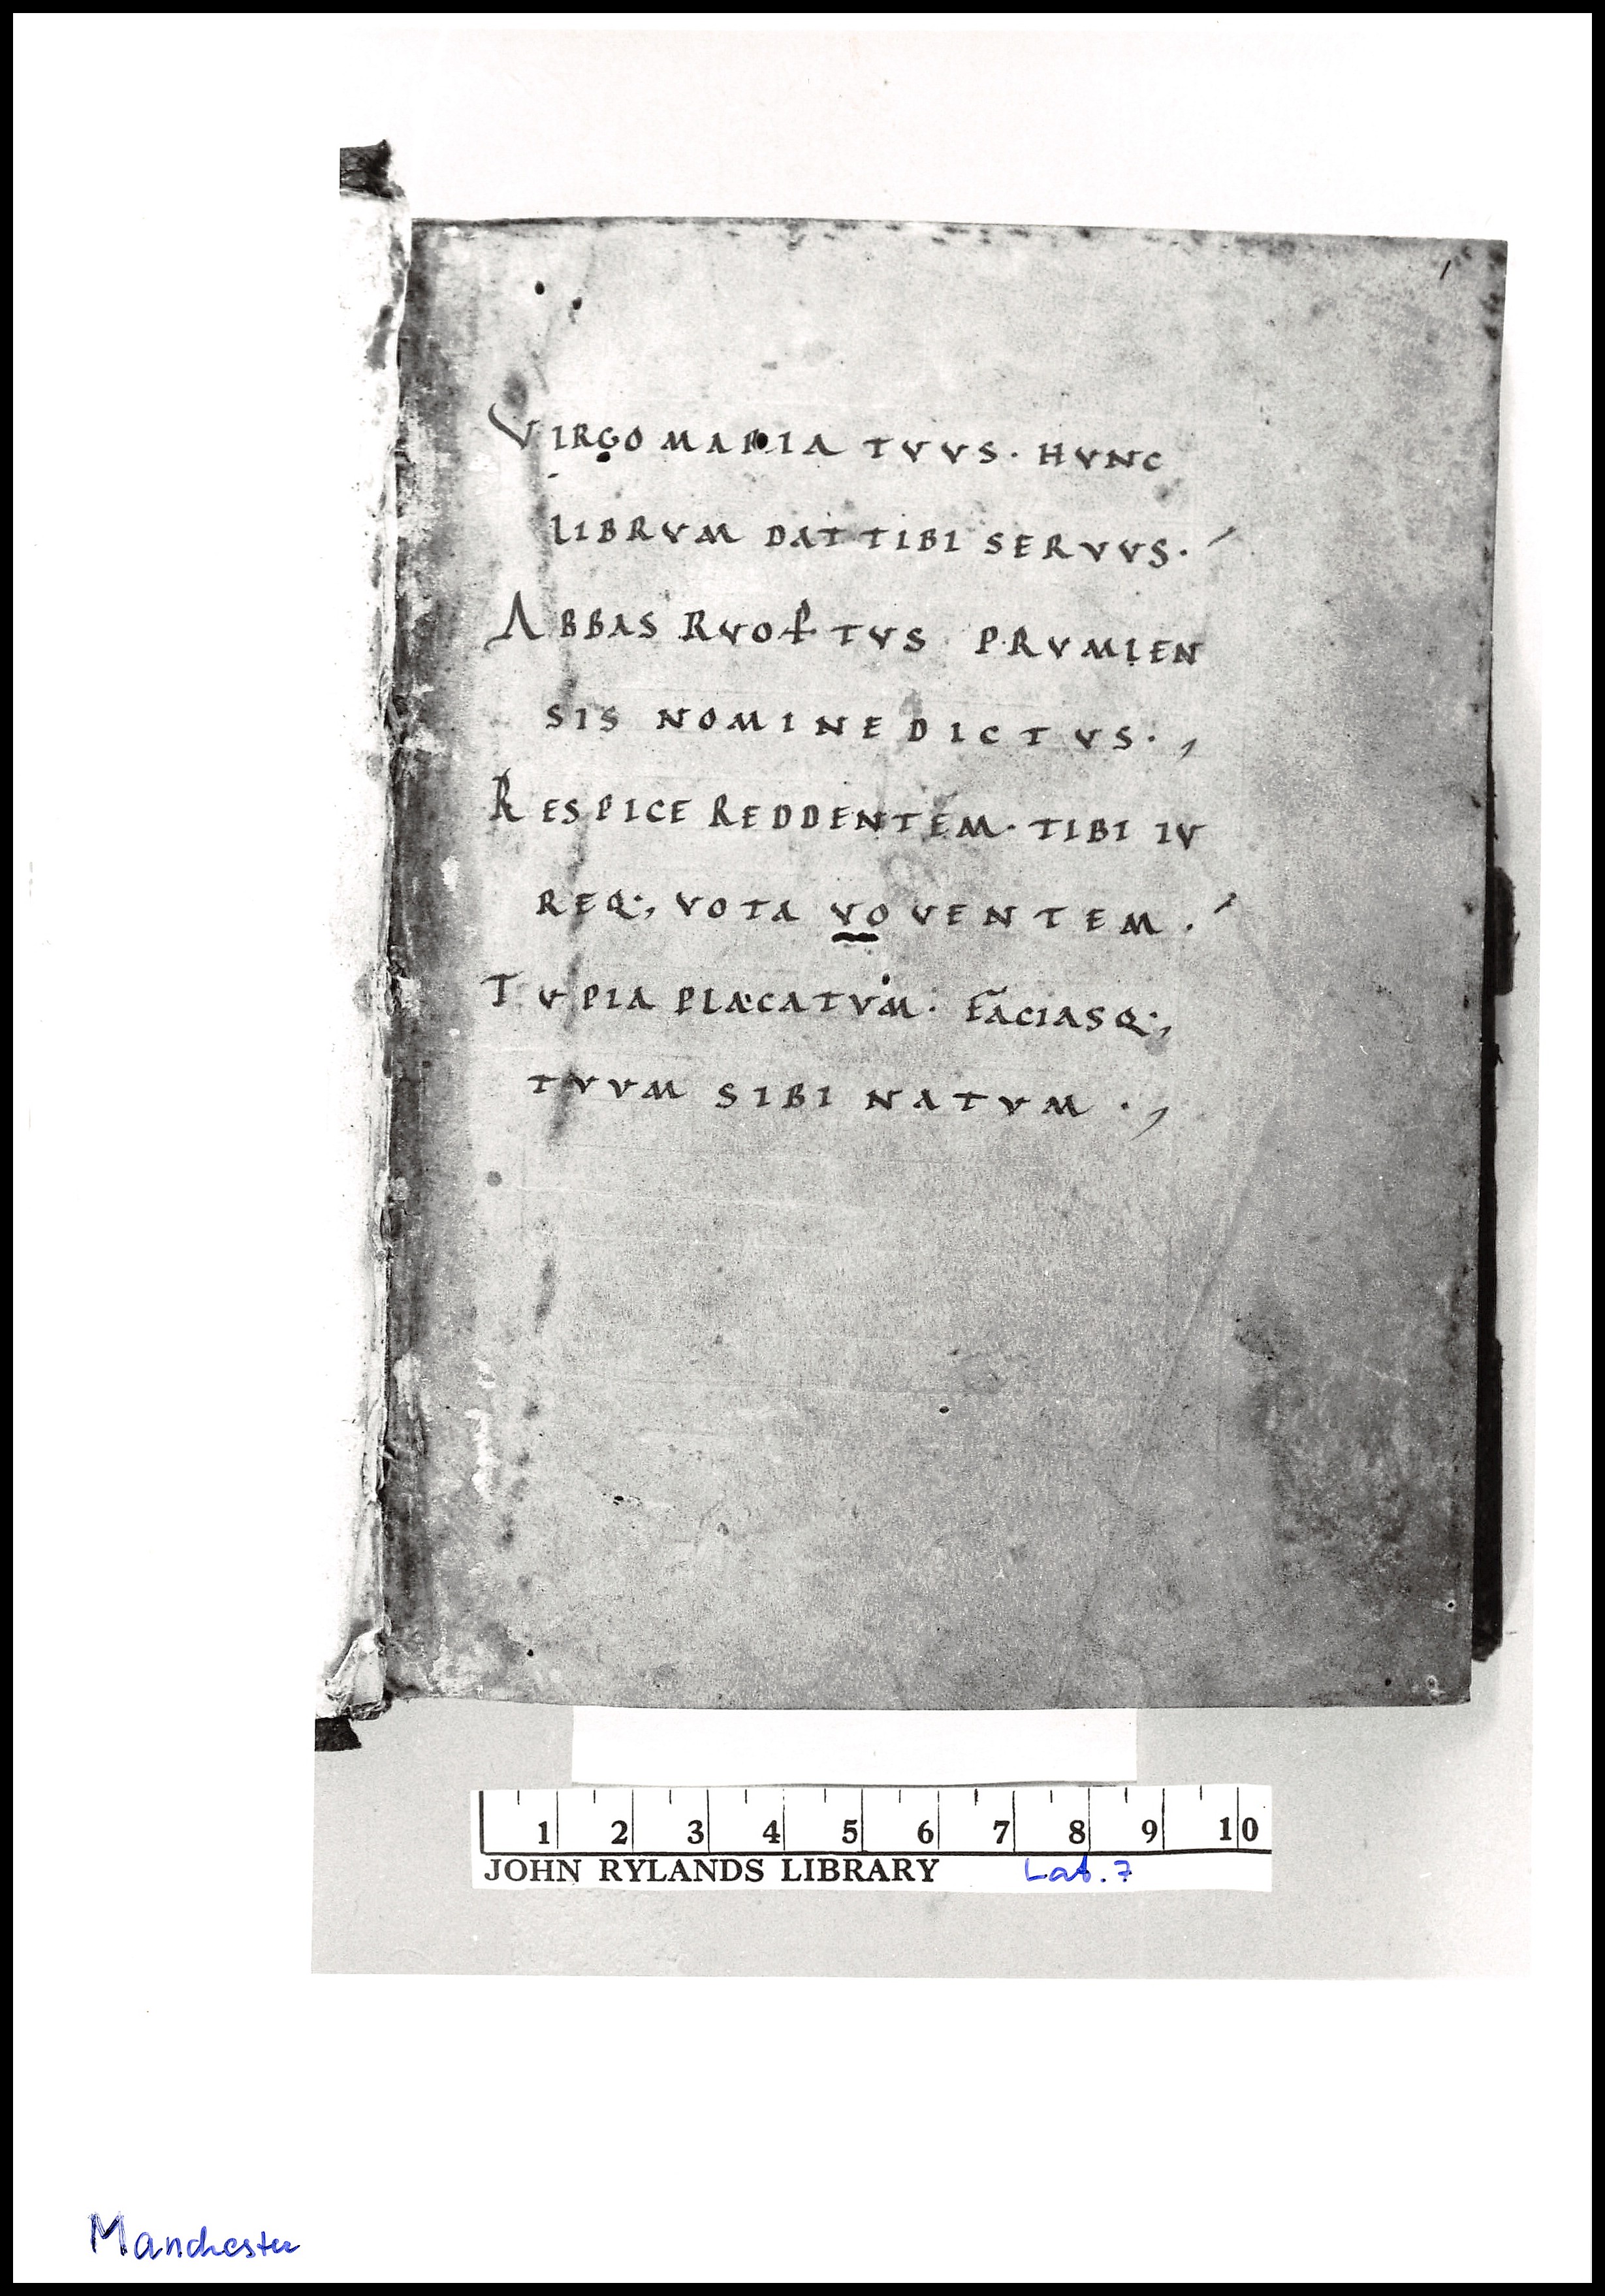 1
VIRGO MARIA TVVS · HVNC
LIBRVM DAT TIBI SERVVS ·
ABBAS RVOFTVS PRVMIEN
SIS NOMINE DICTVS · ,
RESPICE REDDENTEM · TIBI IV
REQ:, VOTA VOVENTEM ·
TV PIA PLACATVM · FACIASQ:,
TVVM SIBI NATVM · ,
1 2 3 4 5 6 7 8 9 10
JOHN RYLANDS LIBRARY Lat. 7
Manchester